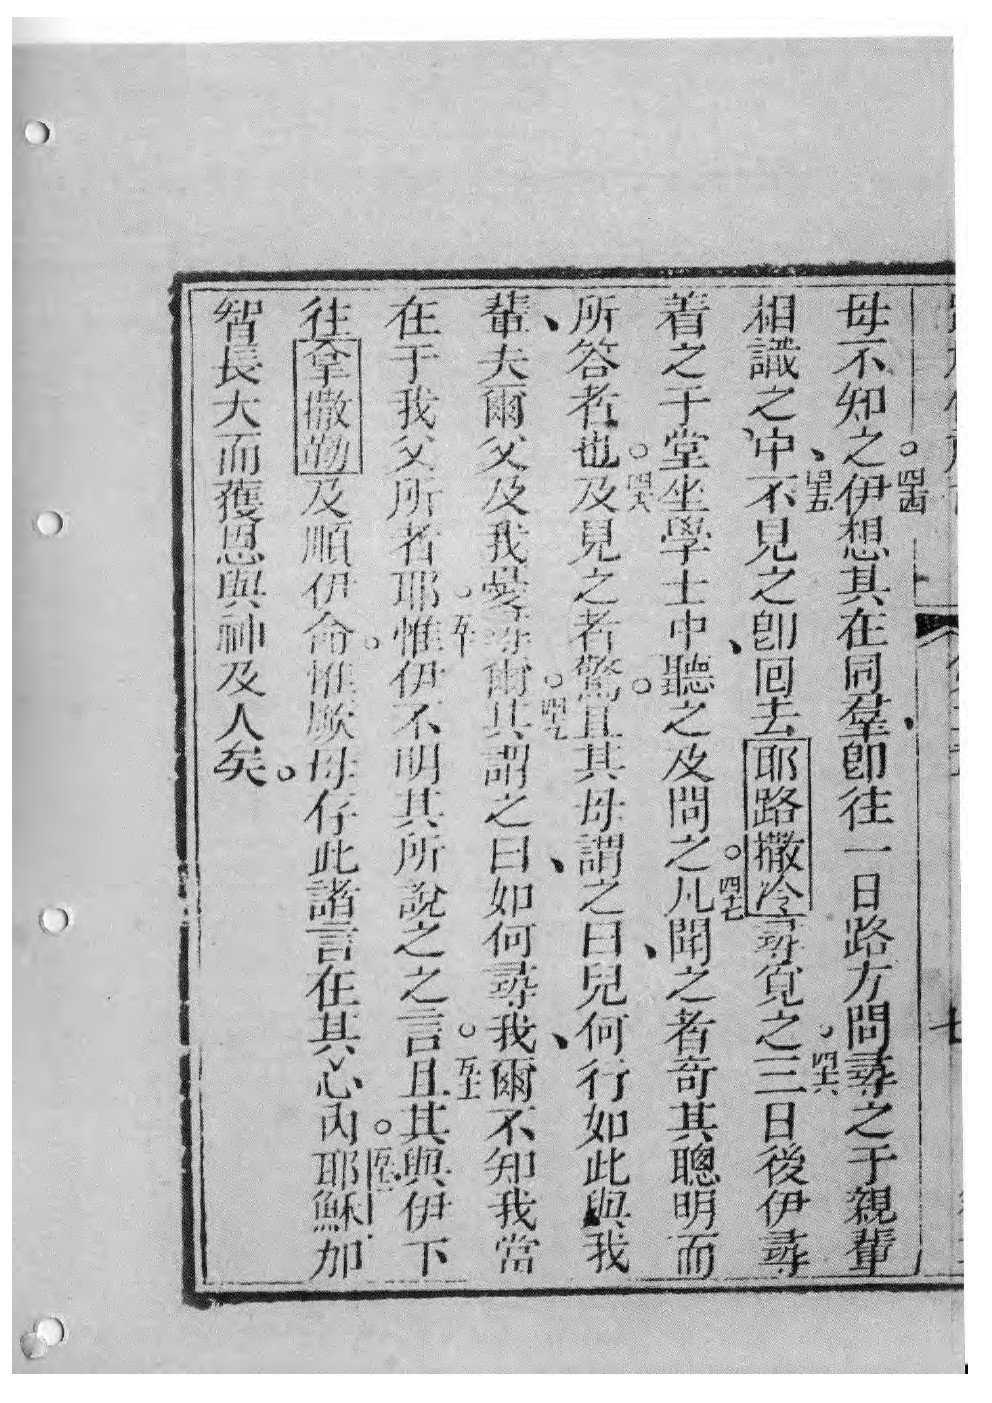 母不知之。四十四伊想其在同羣、卽往一日路方問尋之于親輩
相識之中、四十五不見之卽回去耶路撒冷尋覓之。四十六三日後伊尋
着之于堂、坐學士中、聽之及問之。四十七凡聞之者奇其聰明而
所答者也。四十八及見之者驚。且其母謂之曰、兒何行如此與我
輩、夫爾父及我憂尋爾。四十九其謂之曰、如何尋我、爾不知我當
在于我父所者耶。五十惟伊不明其所說之之言。五十一且其與伊下
往拿撒勒及順伊命。惟厥母仔此諸言在其心內。五十二耶穌加
智長大而獲恩與神及人矣。